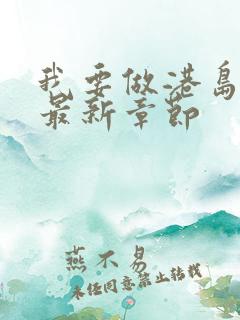 我要做港岛
最新章节
燕不易
未经同意禁止转载